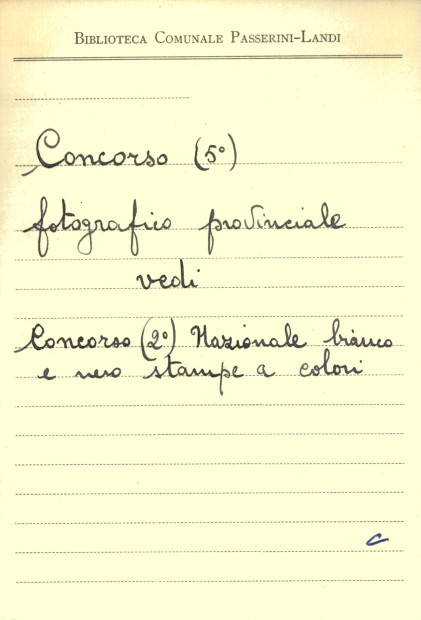 Biblioteca Comunale Passerini-Landi
Concorso (5°)
fotografico provinciale
vedi
Concorso (2°) Nazionale bianco
e nero stampe a colori
C